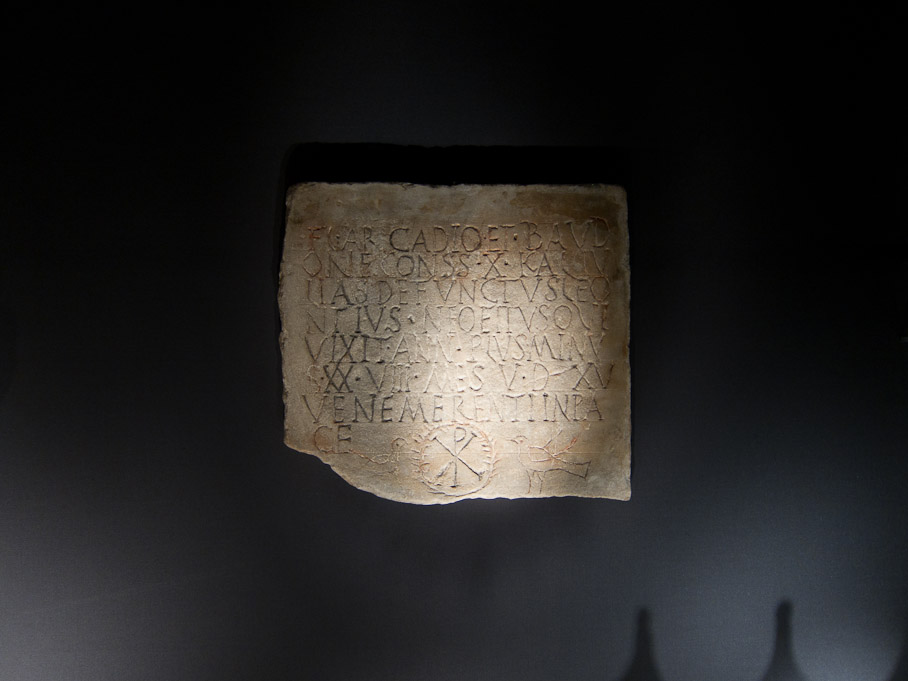 FL·ARCADIO·ET·BAVD
ONE·CONSS·X·KAL·IV
LIAS DEFVNCTVS LEO
NTIVS·NEOFITVS QVI
VIXIT·ANN·PLVS·MINV
S XX·VIII·MES·V·D·XV
VENEMERENTI IN PA
CE